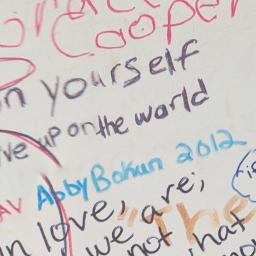 Cooper
n yourself
ve up on the world
AV Abby Bokun 2012
n love, are;
"we are, The
not hat